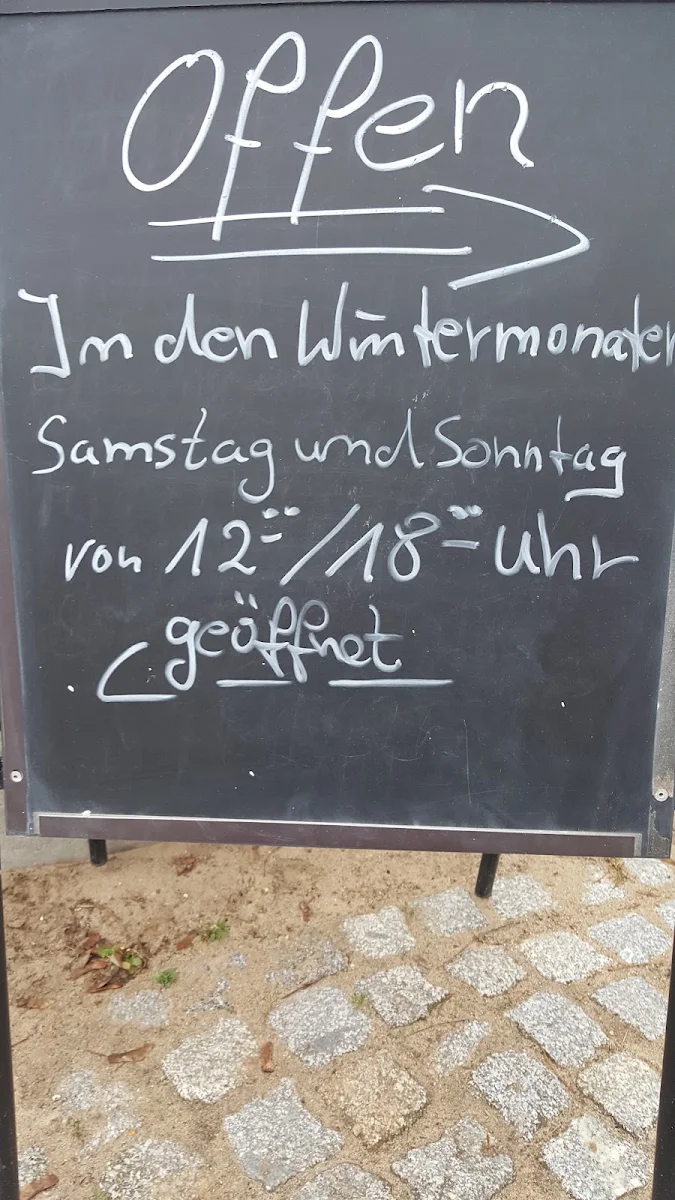 Offen
In den Wintermonaten
Samstag und Sonntag
von 12⁻⁻/18⁻⁻ Uhr
geöffnet